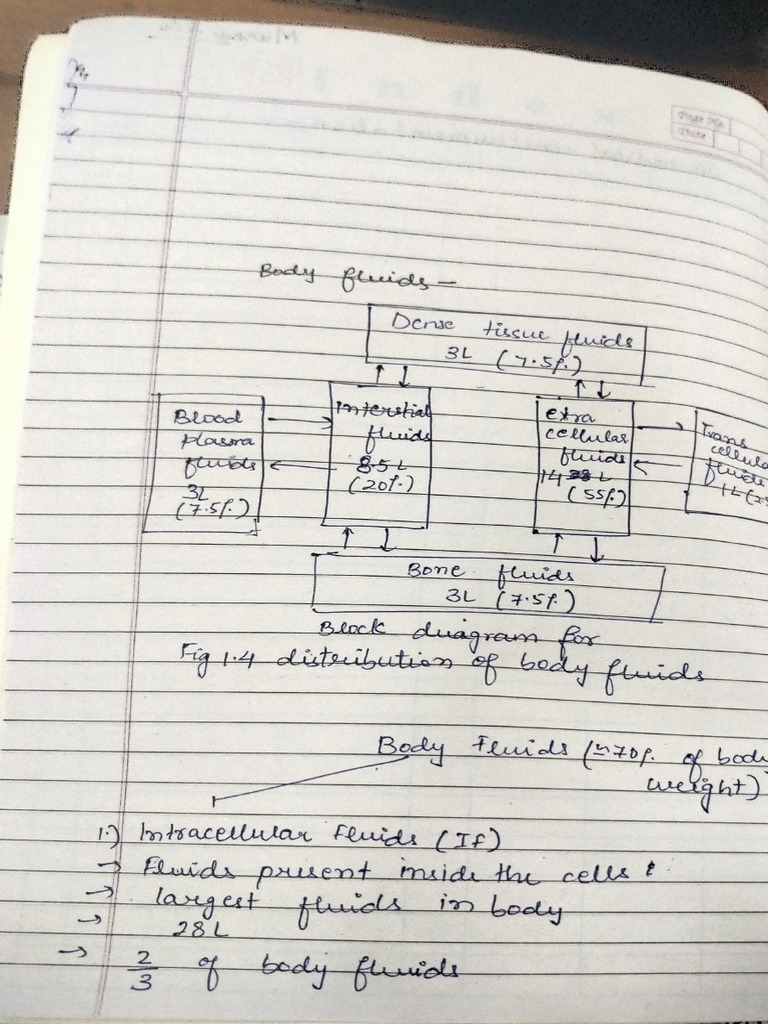 Page No.
Date
Body fluids –
Dense tissue fluids
3L (7.5%)
Blood
plasma
fluids
3L
(7.5%)
Interstial
fluids
8.5L
(20%)
extra
cellular
fluids
14 L
(55%)
Trans
cellula
fluide
1L
Bone fluids
3L (7.5%)
Block diagram for
Fig 1.4 distribution of body fluids
Body Fluids (≃70% of body
weight)
1.) Intracellular Fluids (IF)
→ Fluids present inside the cells
→ largest fluids in body
→ 28L
→ 2/3 of body fluids